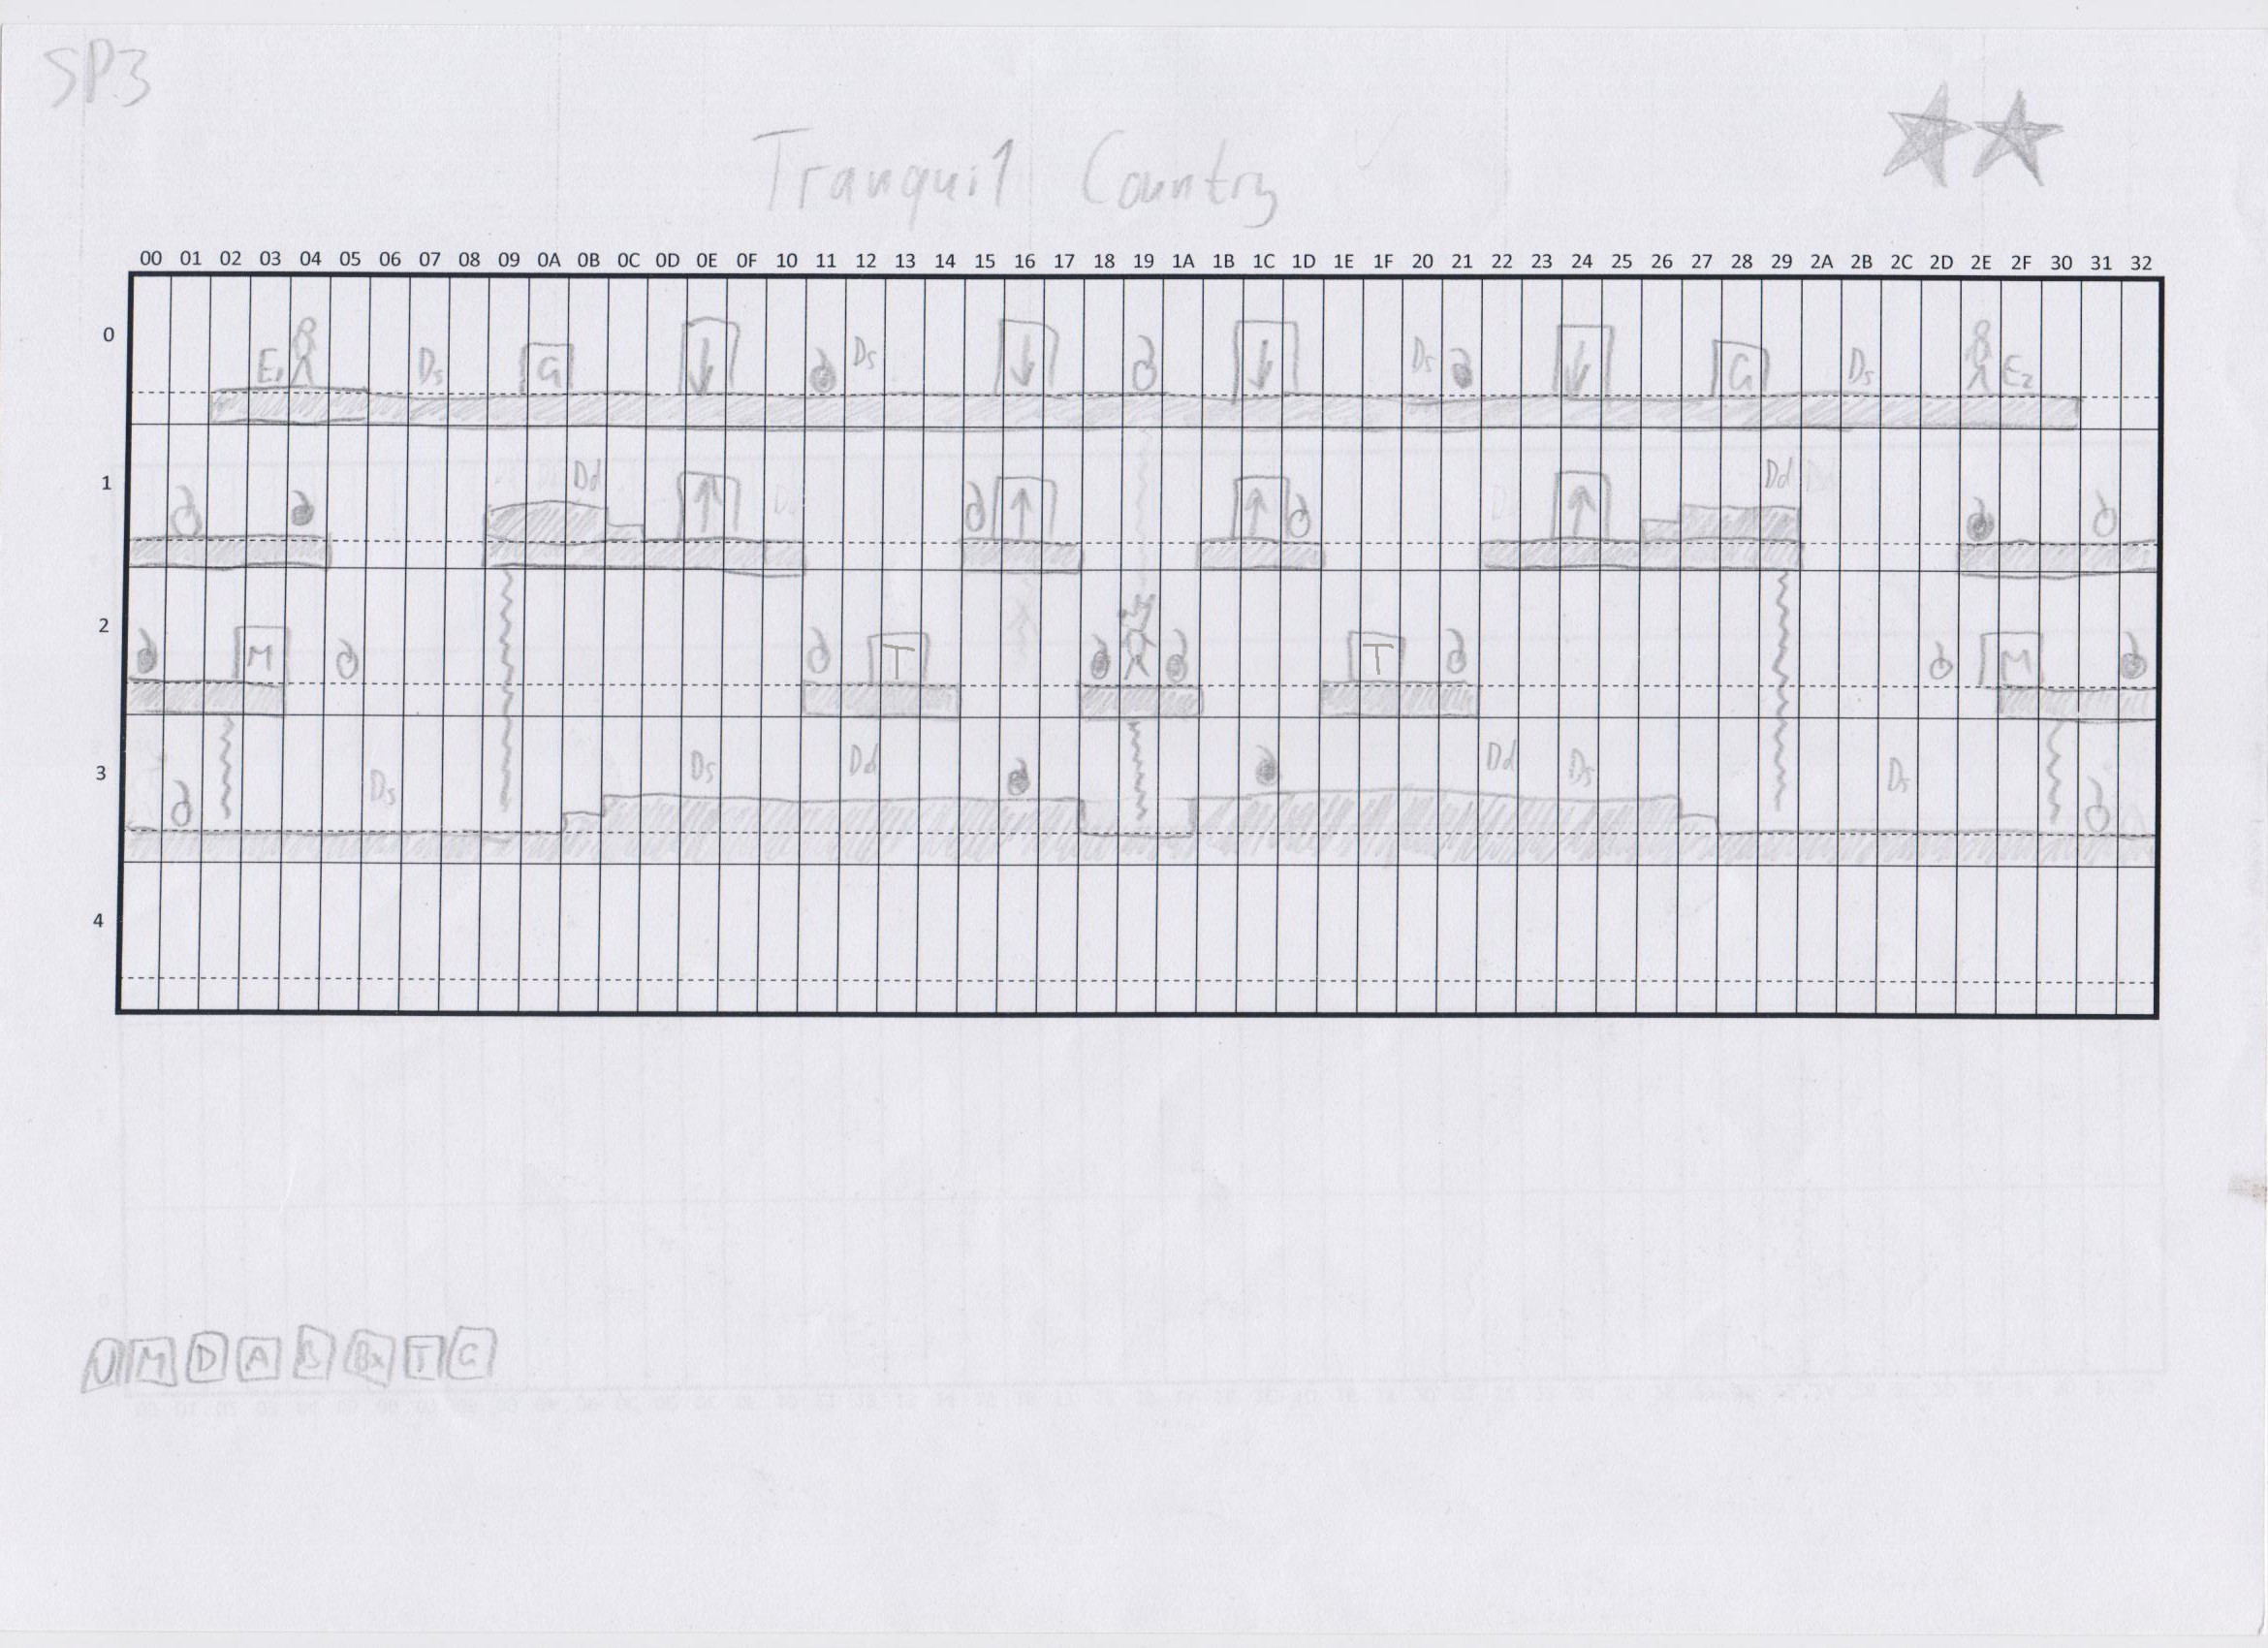 SP3
Tranquil Country
00 01 02 03 04 05 06 07 08 09 0A 0B 0C 0D 0E 0F 10 11 12 13 14 15 16 17 18 19 1A 1B 1C 1D 1E 1F 20 21 22 23 24 25 26 27 28 29 2A 2B 2C 2D 2E 2F 30 31 32
0
E1 Ds G ↓ Ds ↓ ↓ Ds ↓ G Ds E2
1
Dd ↑ ↑ ↑ ↑ Dd
2
M T T M
3
Ds Ds Dd Dd Ds Ds
4
M D A B Bx T G